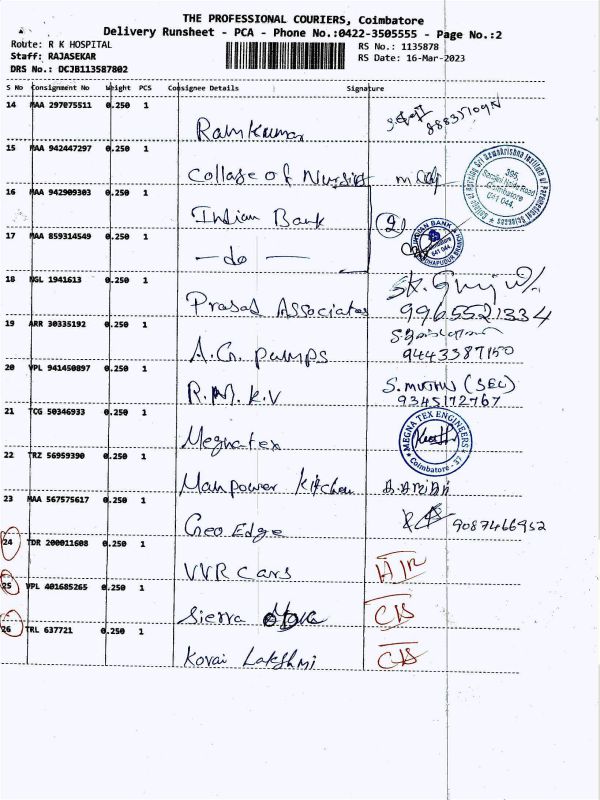 THE PROFESSIONAL COURIERS, Coimbatore
Delivery Runsheet - PCA - Phone No.:0422-3505555 - Page No.:2
Route: R K HOSPITAL
RS No.: 1135878
Staff: RAJASEKAR
RS Date: 16-Mar-2023
DRS No.: DCJB113587802
S No Consignment No Weight PCS Consignee Details Signature
14 MAA 297075511 0.250 1
Ramkumar
15 MAA 942447297 0.250 1
Collage of Nursing
16 MAA 942909303 0.250 1
Indian Bank (2)
17 MAA 859314549 0.250 1
INDIAN BANK
— do —
18 NGL 1941613 0.250 1
Prasad Associates 9965521334
19 ARR 30335192 0.250 1
A.G. Pumps 9443387150
20 VPL 941450897 0.250 1
R.M.K.V S. MUTHU (SEC)
9345172767
21 TCG 50346933 0.250 1
MEGNA TEX ENGINEERS
Coimbatore - 37
Megnatex
22 TRZ 56959390 0.250 1
Manpower Kitchen
23 MAA 567575617 0.250 1
Geo Edge 9087466952
24 TDR 200011608 0.250 1
VVR Cars
25 VPL 401685265 0.250 1
Sierra
26 TRL 637721 0.250 1
Kovai Lakshmi